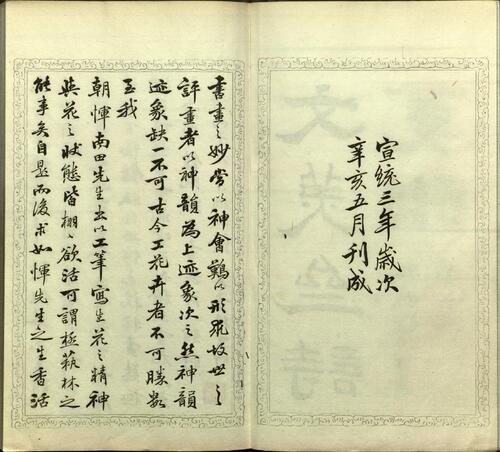 宣統三年歲次
辛亥五月刊成
書畫之妙當以神會難以形器故世之
評畫者以神韻為上迹象次之然神韻
迹象缺一不可古今工花卉者不可勝數
至我
朝惲南田先生出以工筆寫生花之精神
與花之狀態皆栩栩欲活可謂極蓺林之
能事矣自是而後求如惲先生之生香活